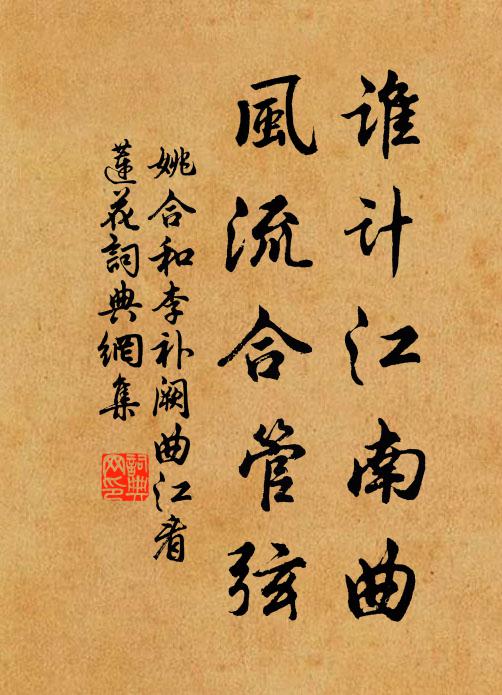 谁计江南曲
風流合管弦
姚合和李补阙曲江看
蓮花詞典網集
詞典
网印